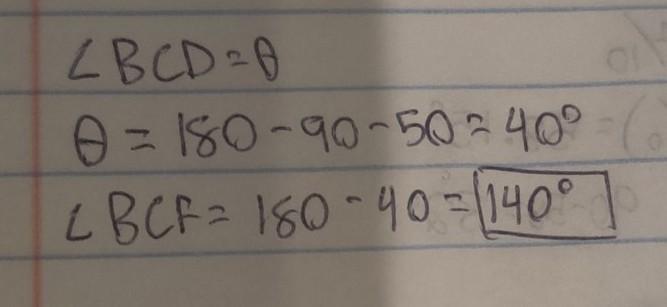 ∠BCD=θ
θ=180-90-50=40°
∠BCF=180-40=140°